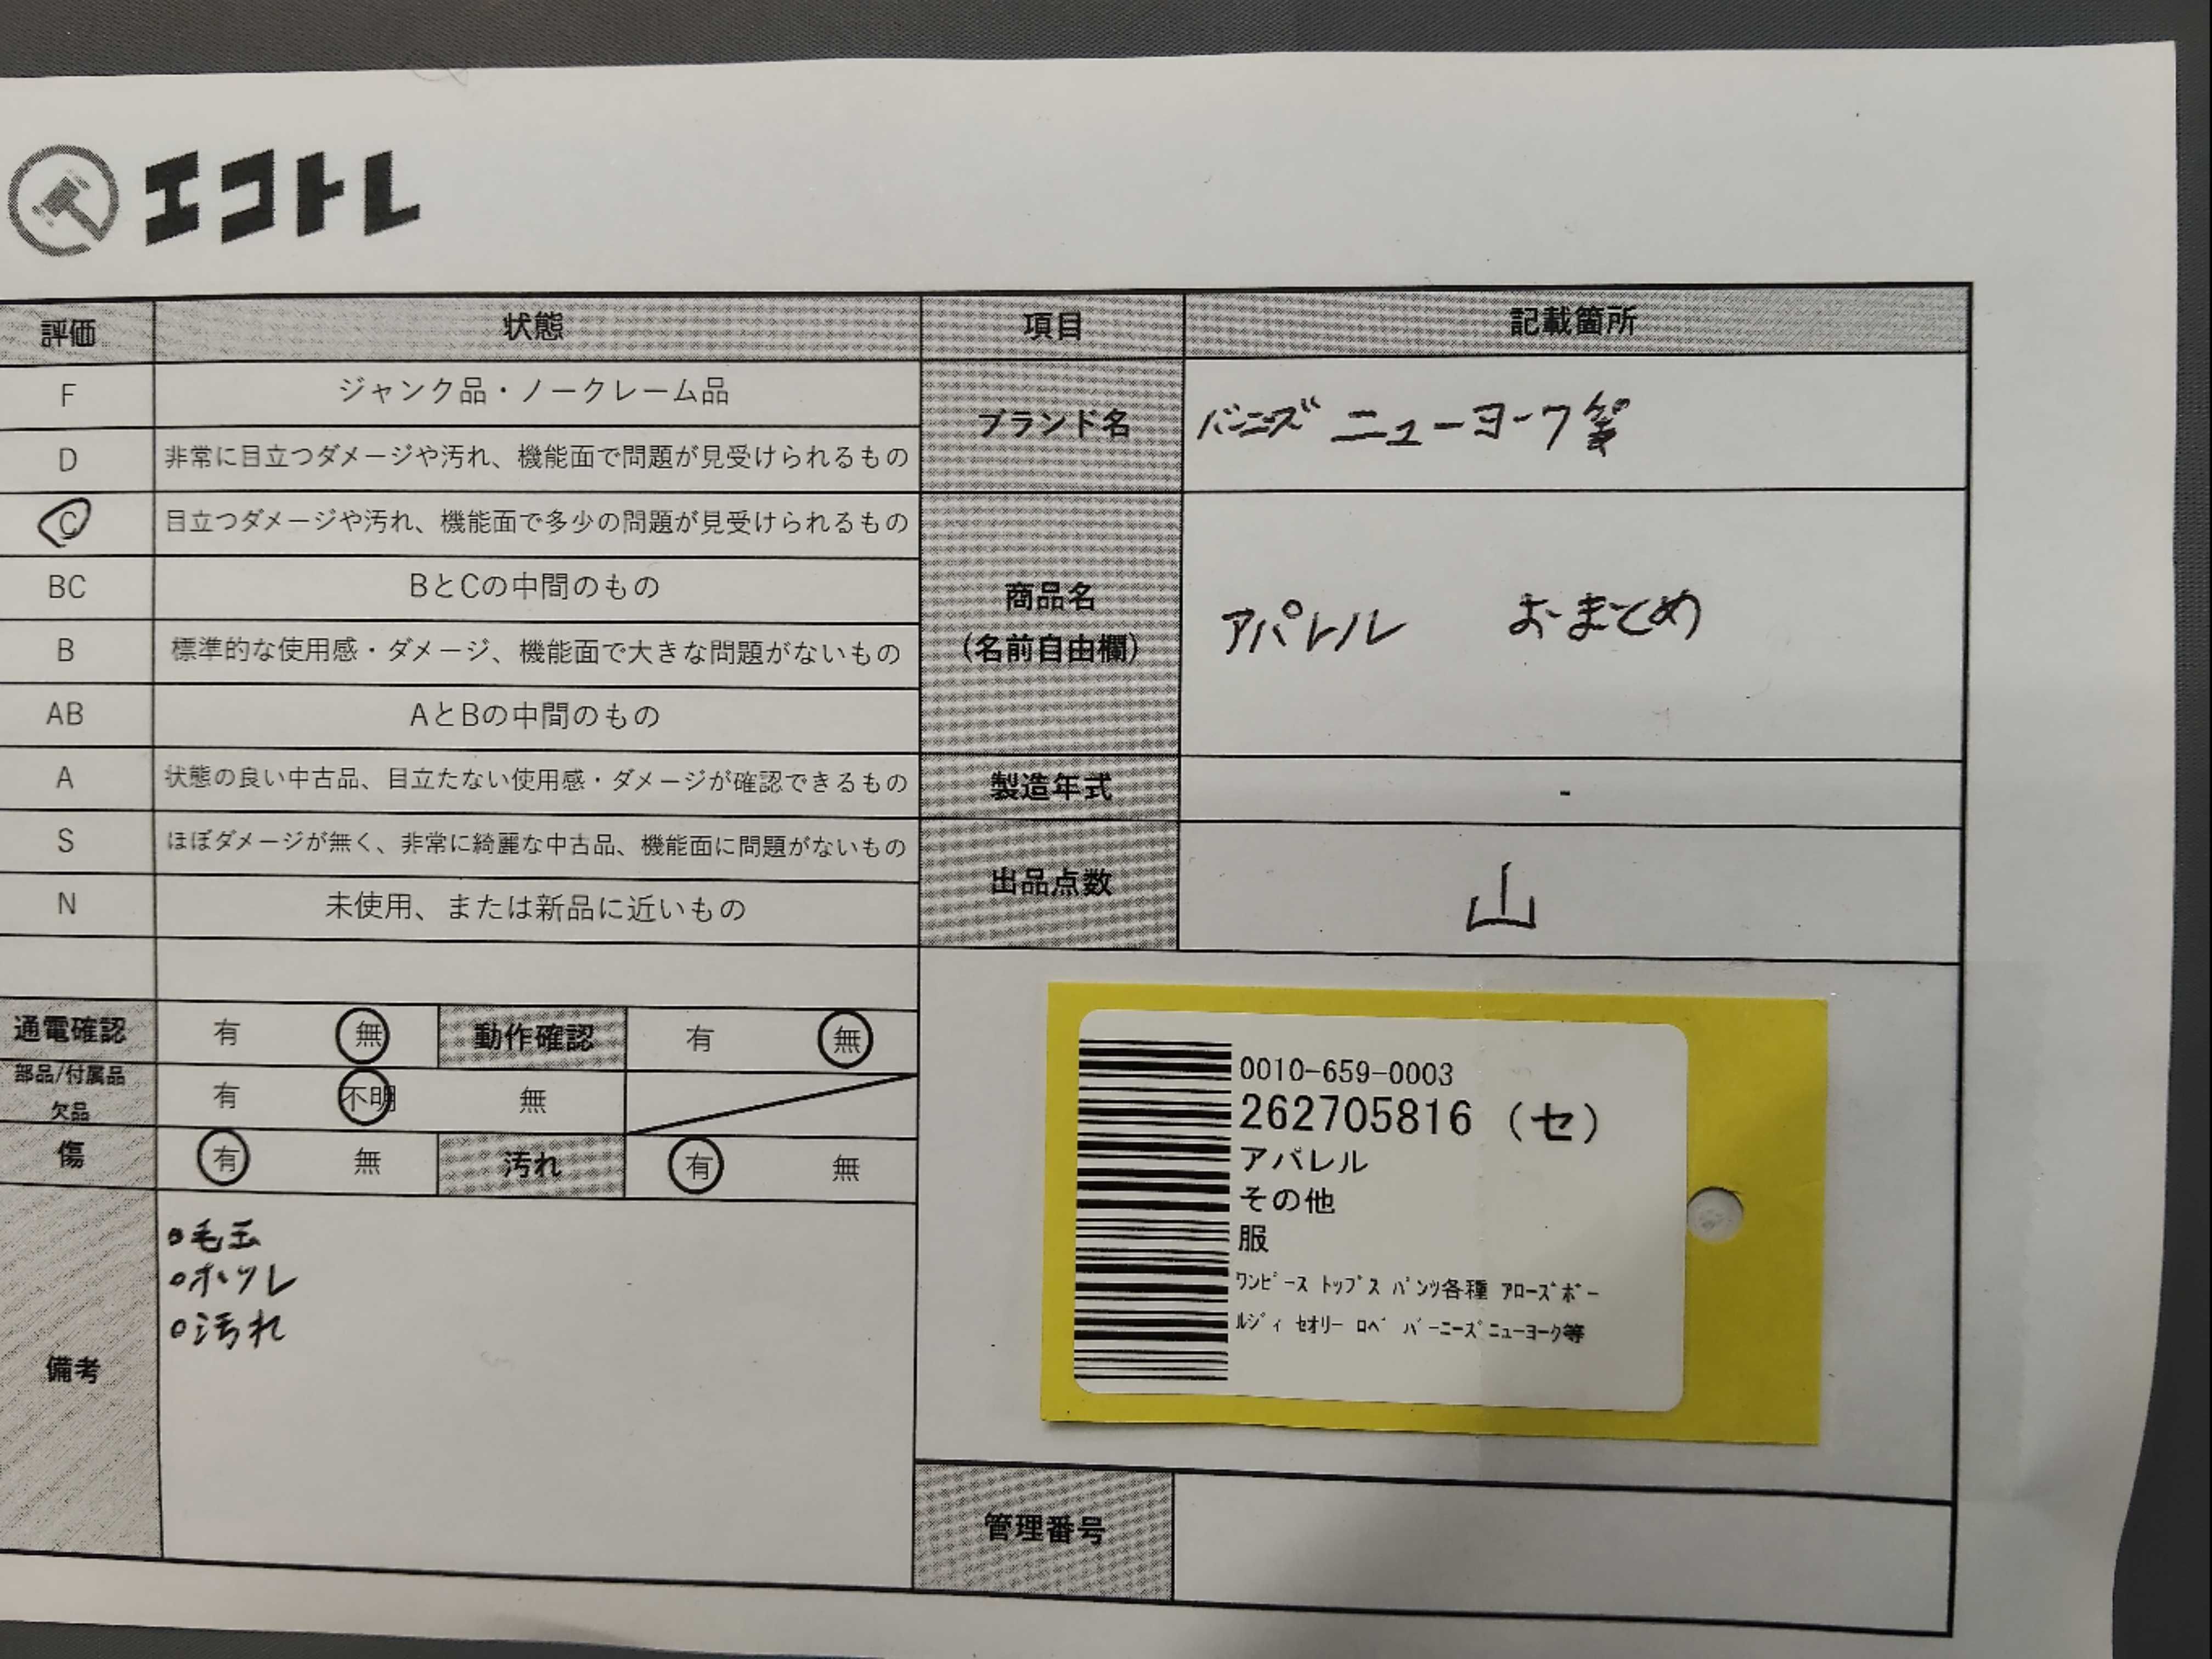 エコトレ
評価 状態 項目 記載箇所
F ジャンク品・ノークレーム品
D 非常に目立つダメージや汚れ、機能面で問題が見受けられるもの
ブランド名 バーニーズ ニューヨーク等
C 目立つダメージや汚れ、機能面で多少の問題が見受けられるもの
BC BとCの中間のもの
B 標準的な使用感・ダメージ、機能面で大きな問題がないもの
AB AとBの中間のもの
商品名
(名前自由欄)
アパレル おまとめ
A 状態の良い中古品、目立たない使用感・ダメージが確認できるもの
製造年式 -
S ほぼダメージが無く、非常に綺麗な中古品、機能面に問題がないもの
N 未使用、または新品に近いもの
出品点数 山
通電確認 有 無 動作確認 有 無
部品/付属品
欠品
有 不明 無
傷 有 無 汚れ 有 無
備考
毛玉
ホツレ
汚れ
0010-659-0003
262705816 (セ)
アパレル
その他
服
ﾜﾝﾋﾟｰｽ ﾄｯﾌﾟｽ ﾊﾟﾝﾂ各種 ｱﾛｰｽﾞﾎﾞｰ
ﾙｼﾞｨ ｾｵﾘｰ ﾛﾍﾟ ﾊﾞｰﾆｰｽﾞﾆｭｰﾖｰｸ等
管理番号